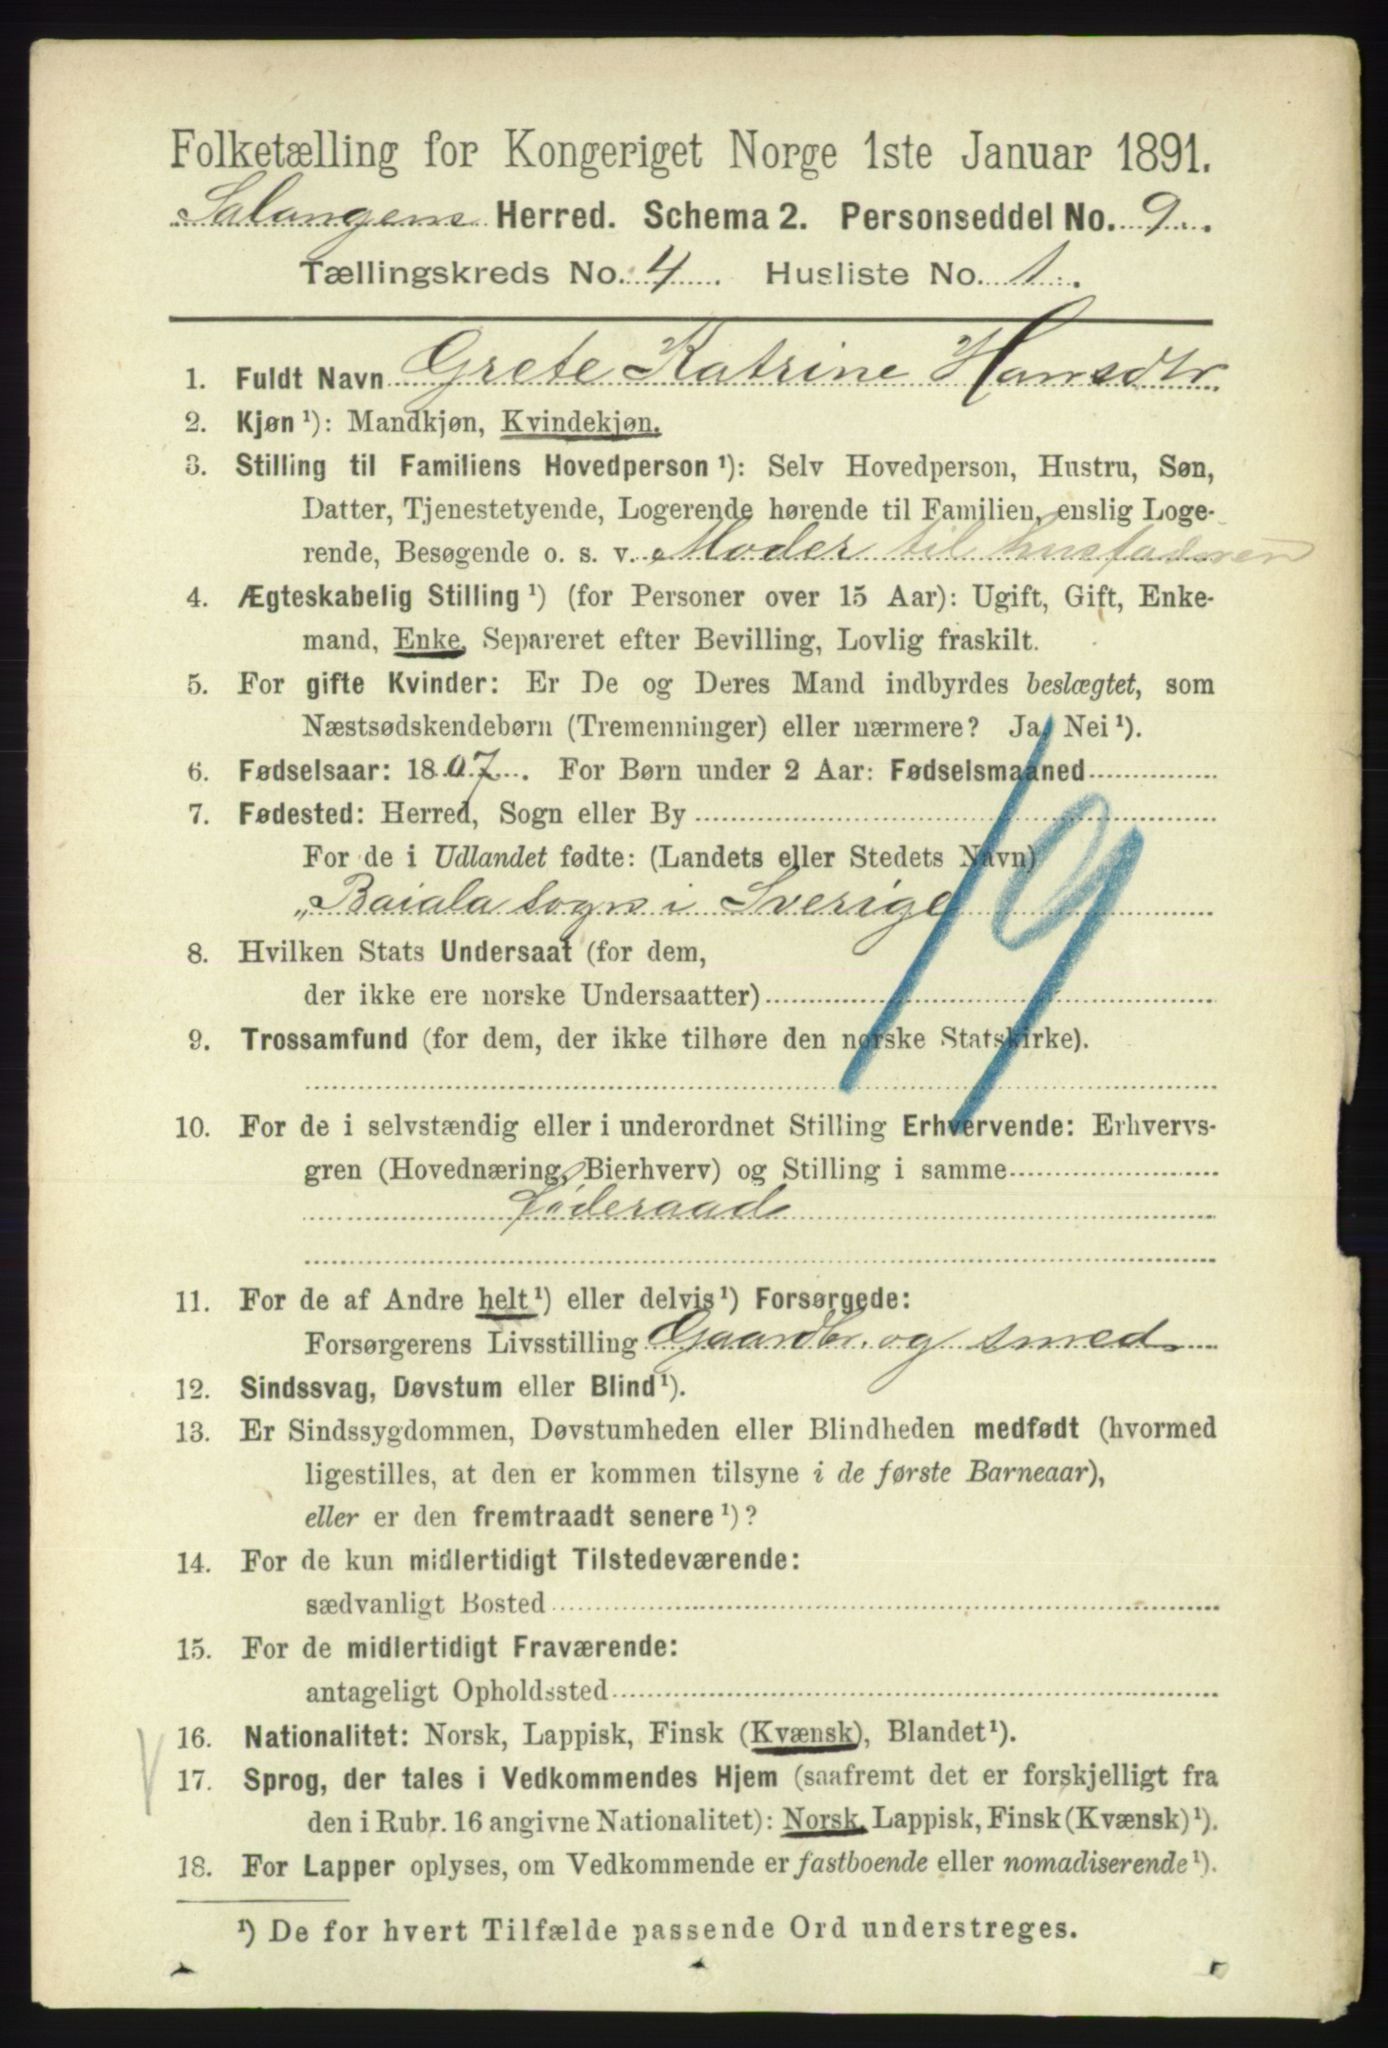 Folketælling for Kongeriget Norge 1ste Januar 1891.
Salangens Herred. Schema 2. Personseddel No. 9.
Tællingskreds No. 4. Husliste No. 1.
1. Fuldt Navn Grete Katrine Hansdtr.
2. Kjøn ¹): Mandkjøn, Kvindekjøn.
3. Stilling til Familiens Hovedperson ¹): Selv Hovedperson, Hustru, Søn,
Datter, Tjenestetyende, Logerende hørende til Familien, enslig Loge-
rende, Besøgende o. s. v. Moder til husfaderen
4. Ægteskabelig Stilling ¹) (for Personer over 15 Aar): Ugift, Gift, Enke-
mand, Enke, Separeret efter Bevilling, Lovlig fraskilt.
5. For gifte Kvinder: Er De og Deres Mand indbyrdes beslægtet, som
Næstsødskendebørn (Tremenninger) eller nærmere? Ja, Nei ¹).
6. Fødselsaar: 1807. For Børn under 2 Aar: Fødselsmaaned
7. Fødested: Herred, Sogn eller By
For de i Udlandet fødte: (Landets eller Stedets Navn)
"Baiala sogn i Sverige
19
8. Hvilken Stats Undersaat (for dem,
der ikke ere norske Undersaatter)
9. Trossamfund (for dem, der ikke tilhøre den norske Statskirke).
10. For de i selvstændig eller i underordnet Stilling Erhvervende: Erhvervs-
gren (Hovednæring, Bierhverv) og Stilling i samme
Føderaad
11. For de af Andre helt ¹) eller delvis ¹) Forsørgede:
Forsørgerens Livsstilling Gaardbr. og smed
12. Sindssvag, Døvstum eller Blind ¹).
13. Er Sindssygdommen, Døvstumheden eller Blindheden medfødt (hvormed
ligestilles, at den er kommen tilsyne i de første Barneaar),
eller er den fremtraadt senere ¹)?
14. For de kun midlertidigt Tilstedeværende:
sædvanligt Bosted
15. For de midlertidigt Fraværende:
antageligt Opholdssted
16. Nationalitet: Norsk, Lappisk, Finsk (Kvænsk), Blandet ¹).
17. Sprog, der tales i Vedkommendes Hjem (saafremt det er forskjelligt fra
den i Rubr. 16 angivne Nationalitet): Norsk, Lappisk, Finsk (Kvænsk) ¹).
18. For Lapper oplyses, om Vedkommende er fastboende eller nomadiserende ¹).
¹) De for hvert Tilfælde passende Ord understreges.